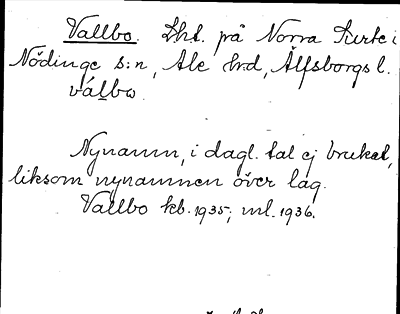 Vallbo. Lht. på Norra Surte i
Nödinge s:n, Ale hrd, Älfsborgs l.
válbω
Nynamn, i dagl. tal ej brukat,
liksom nynamnen över lag.
Vallbo kb. 1935; ml. 1936.